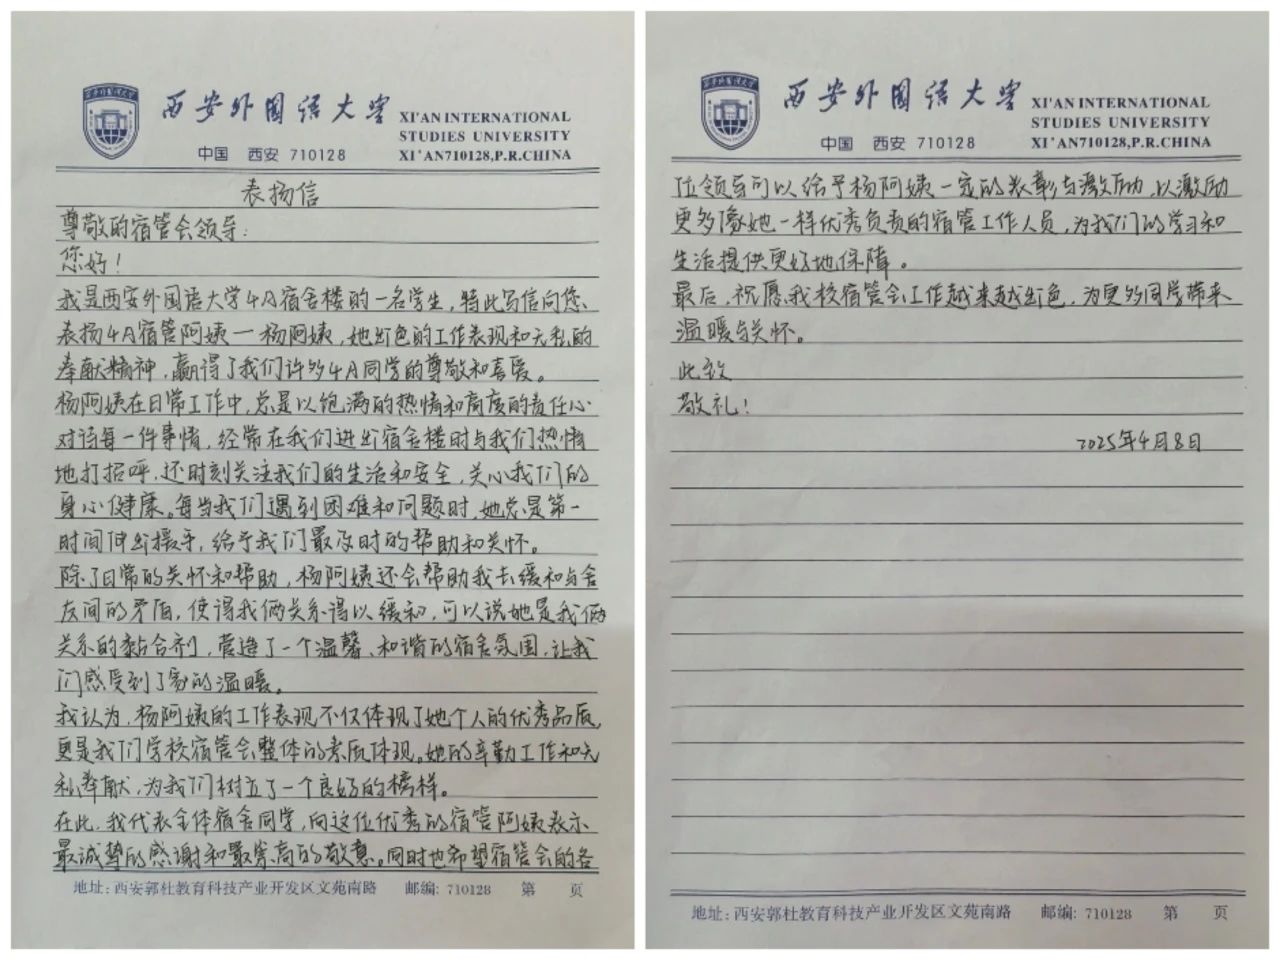 西安外国语大学
XI'AN INTERNATIONAL
STUDIES UNIVERSITY
中国 西安 710128
XI'AN710128,P.R.CHINA
表扬信
尊敬的宿管会领导:
您好!
我是西安外国语大学4A宿舍楼的一名学生,特此写信向您、
表扬4A宿管阿姨一杨阿姨,她出色的工作表现和无私的
奉献精神,赢得了我们许多4A同学的尊敬和喜爱。
杨阿姨在日常工作中,总是以饱满的热情和高度的责任心
对待每一件事情,经常在我们进出宿舍楼时与我们热情
地打招呼,还时刻关注我们的生活和安全,关心我们的
身心健康。每当我们遇到困难和问题时,她总是第一
时间伸出援手,给予我们最及时的帮助和关怀。
除了日常的关怀和帮助,杨阿姨还会帮助我去缓和与舍
友间的矛盾,使得我俩关系得以缓和,可以说她是我俩
关系的黏合剂,营造了一个温馨、和谐的宿舍氛围,让我
们感受到了家的温暖。
我认为,杨阿姨的工作表现不仅体现了她个人的优秀品质,
更是我们学校宿管会整体的素质体现。她的辛勤工作和无
私奉献,为我们树立了一个良好的榜样。
在此,我代表全体宿舍同学,向这位优秀的宿管阿姨表示
最诚挚的感谢和最崇高的敬意。同时也希望宿管会的各
地址:西安郭杜教育科技产业开发区文苑南路 邮编: 710128 第 页
西安外国语大学
XI'AN INTERNATIONAL
STUDIES UNIVERSITY
中国 西安 710128
XI'AN710128,P.R.CHINA
位领导可以给予杨阿姨一定的表彰与激励,以激励
更多像她一样优秀负责的宿管工作人员,为我们的学习和
生活提供更好地保障。
最后,祝愿我校宿管会工作越来越出色,为更多同学带来
温暖与关怀。
此致
敬礼!
2025年4月8日
地址:西安郭杜教育科技产业开发区文苑南路 邮编: 710128 第 页